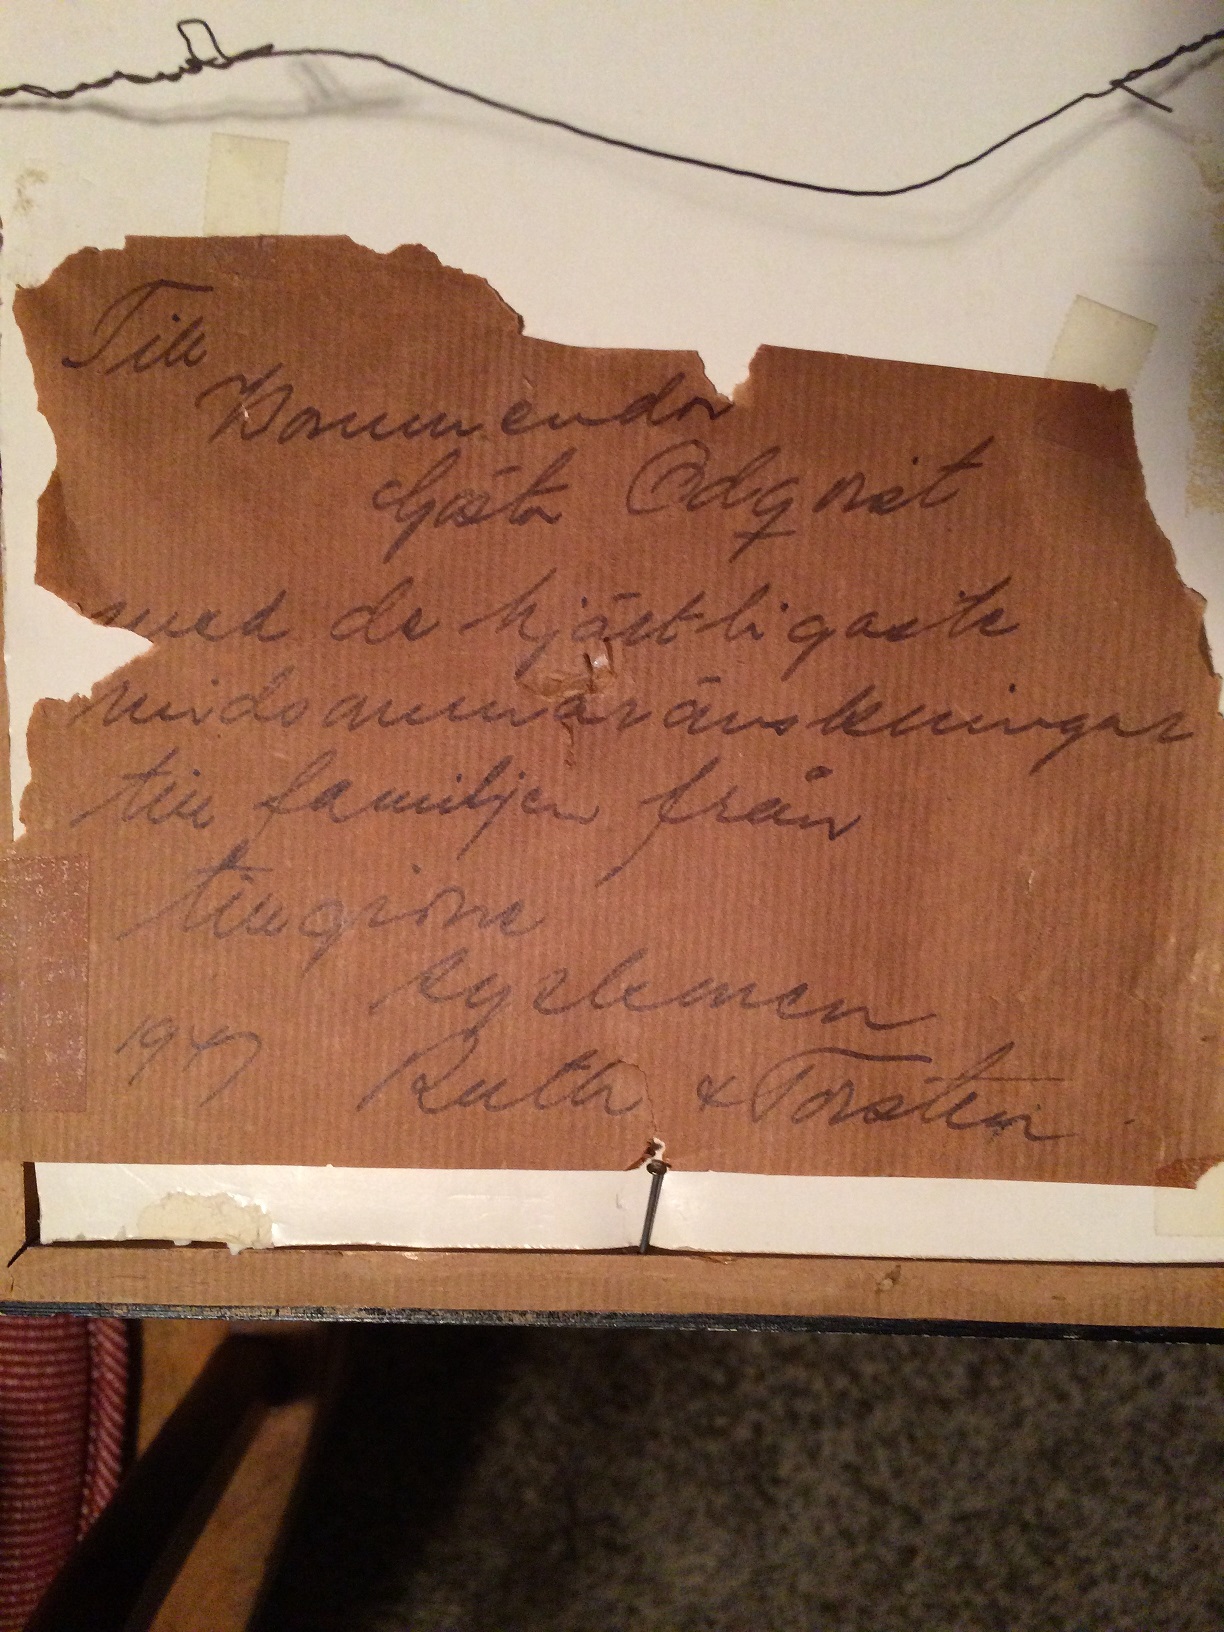 Till
Kommendör
Gösta Odqvist
med de hjärtligaste
midsommarönskningar
till familjen från
tillgivne
Ruth & Torsten
1947